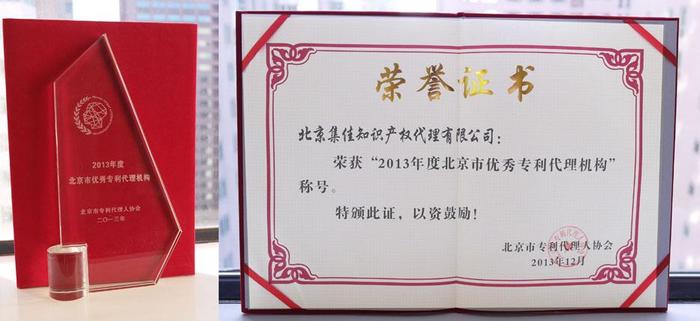 2013年度
北京市优秀专利代理机构
北京市专利代理人协会
二〇一三年
荣誉证书
北京集佳知识产权代理有限公司：
荣获“2013年度北京市优秀专利代理机构”
称号。
特颁此证，以资鼓励！
北京市专利代理人协会
2013年12月